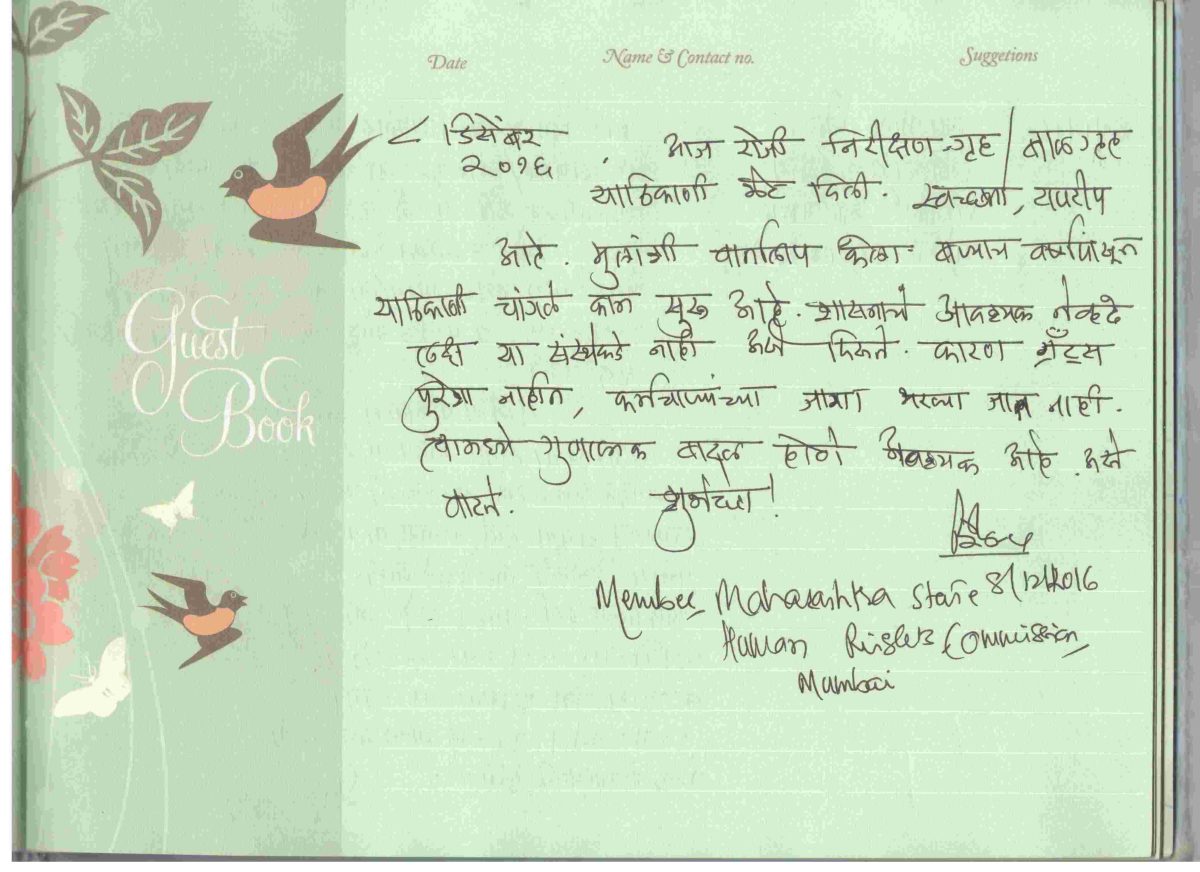 Date Name & Contact no. Suggetions
८ डिसेंबर आज रोजी निरीक्षण गृह / बाळगृह
२०१६ याठिकाणी भेट दिली. स्वच्छता, टापटीप
आहे. मुलांशी वार्तालाप केला बऱ्याच वर्षापासून
याठिकाणी चांगले काम सुरू आहे. शासनाचे आवश्यक तेव्हढे
लक्ष या संस्थेकडे नाही असे दिसते. कारण ग्रँट्स
पुरेशा नाहीत, कर्मचाऱ्यांच्या जागा भरल्या जात नाही.
त्यामध्ये गुणात्मक बादल होणे आवश्यक आहे. असे
वाटते. शुभेच्छा!
Guest
Book
8/12/2016
Member, Maharashtra State
Human Rights Commission,
Mumbai